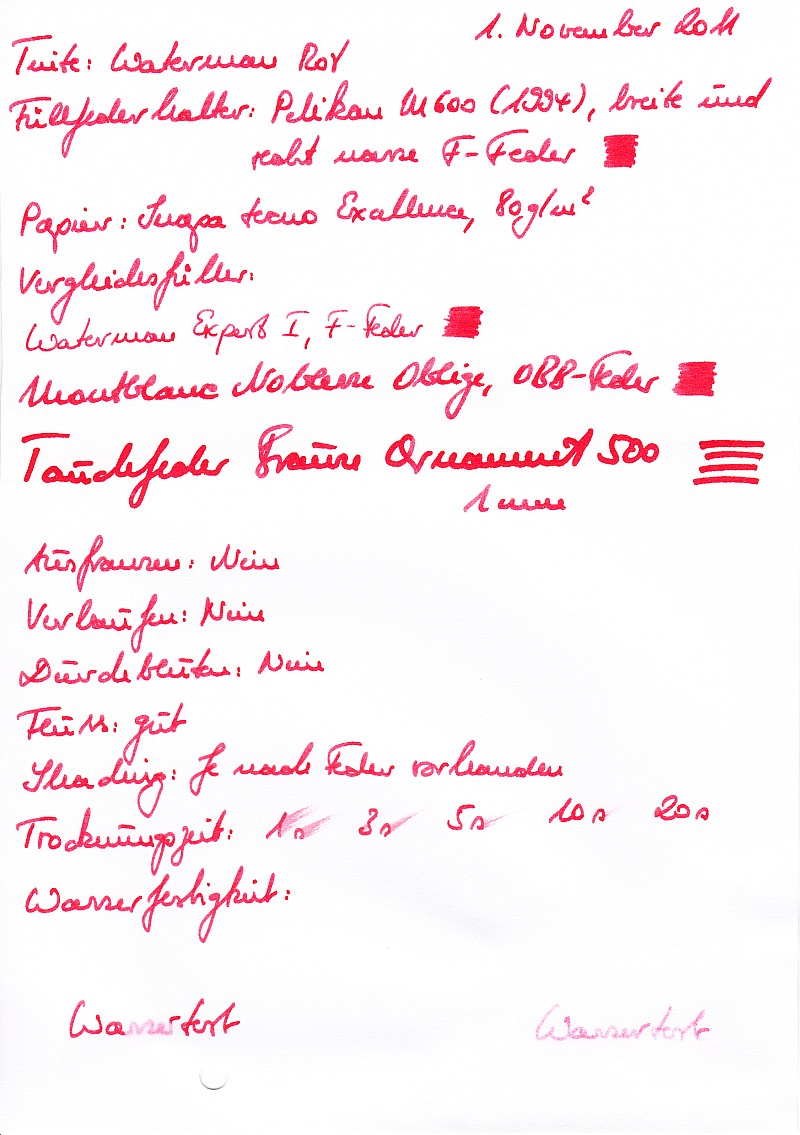 1. November 2011
Tinte: Waterman Rot
Füllfederhalter: Pelikan M600 (1994), breite und
recht nasse F-Feder
Papier: Inapa tecno Excellence, 80g/m²
Vergleichsfüller:
Waterman Expert I, F-Feder
Montblanc Noblesse Oblige, OBB-Feder
Tauchfeder Brause Ornament 500
1 mm
Ausfransen: Nein
Verlaufen: Nein
Durchbluten: Nein
Fluss: gut
Shading: Je nach Feder vorhanden
Trocknungszeit: 1s 3s 5s 10s 20s
Wasserfestigkeit:
Wassertest Wassertest